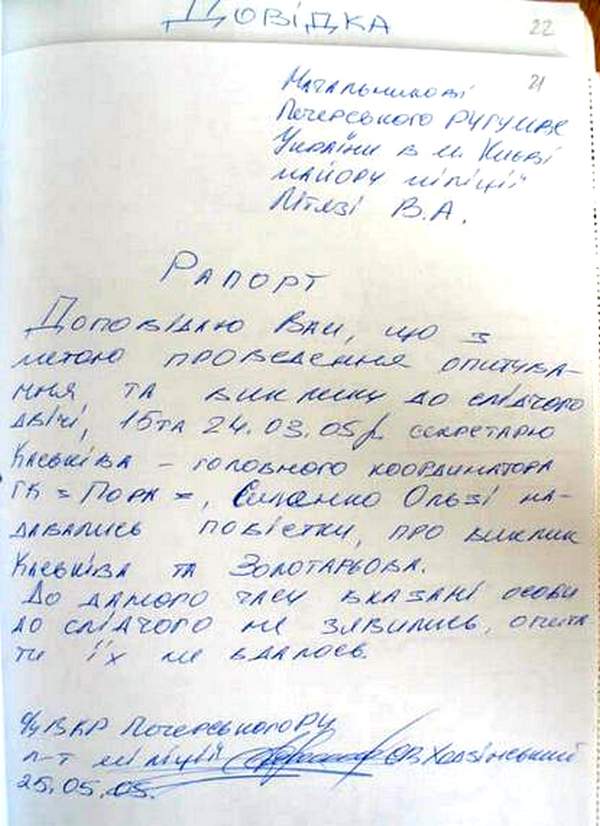 Довідка
22
21
Начальникові
Печерського РУГУМВС
України в м. Києві
майору міліції
Літязі В.А.
Рапорт
Доповідаю Вам, що з
метою проведення опитува-
ння, та виклику до слідчого
двічі, 15 та 24.03.05р. секретарю
Каськіва – головного координатора
ГК "Пора", Ользі на-
давались повістки, про виклик
Каськіва та Золотарьова.
До даного часу вказані особи
до слідчого не зявились, опита-
ти їх не вдалось.
о/у ВКР Печерського РУ
л-т міліції ЄВ Ходзінський
25.05.05.